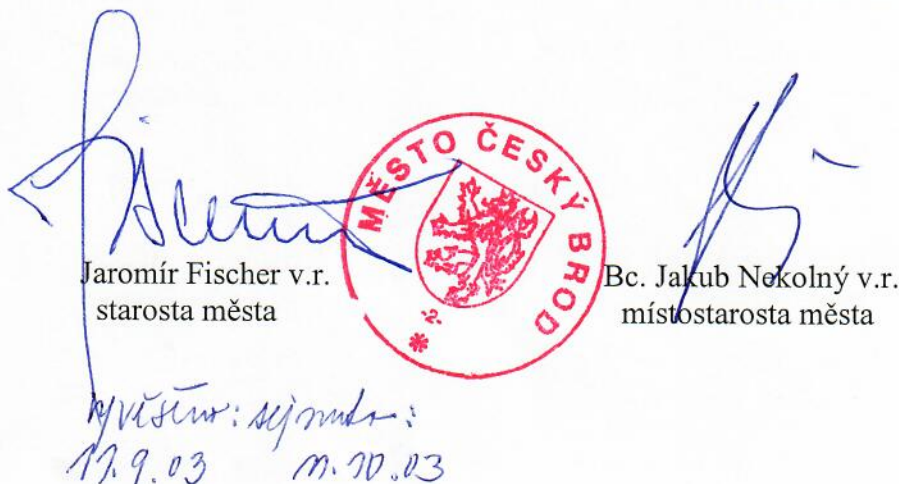 MĚSTO ČESKÝ BROD
-2-
Jaromír Fischer v.r.
starosta města
Bc. Jakub Nekolný v.r.
místostarosta města
vyvěšeno: sejmuto:
11.9.03 11.10.03